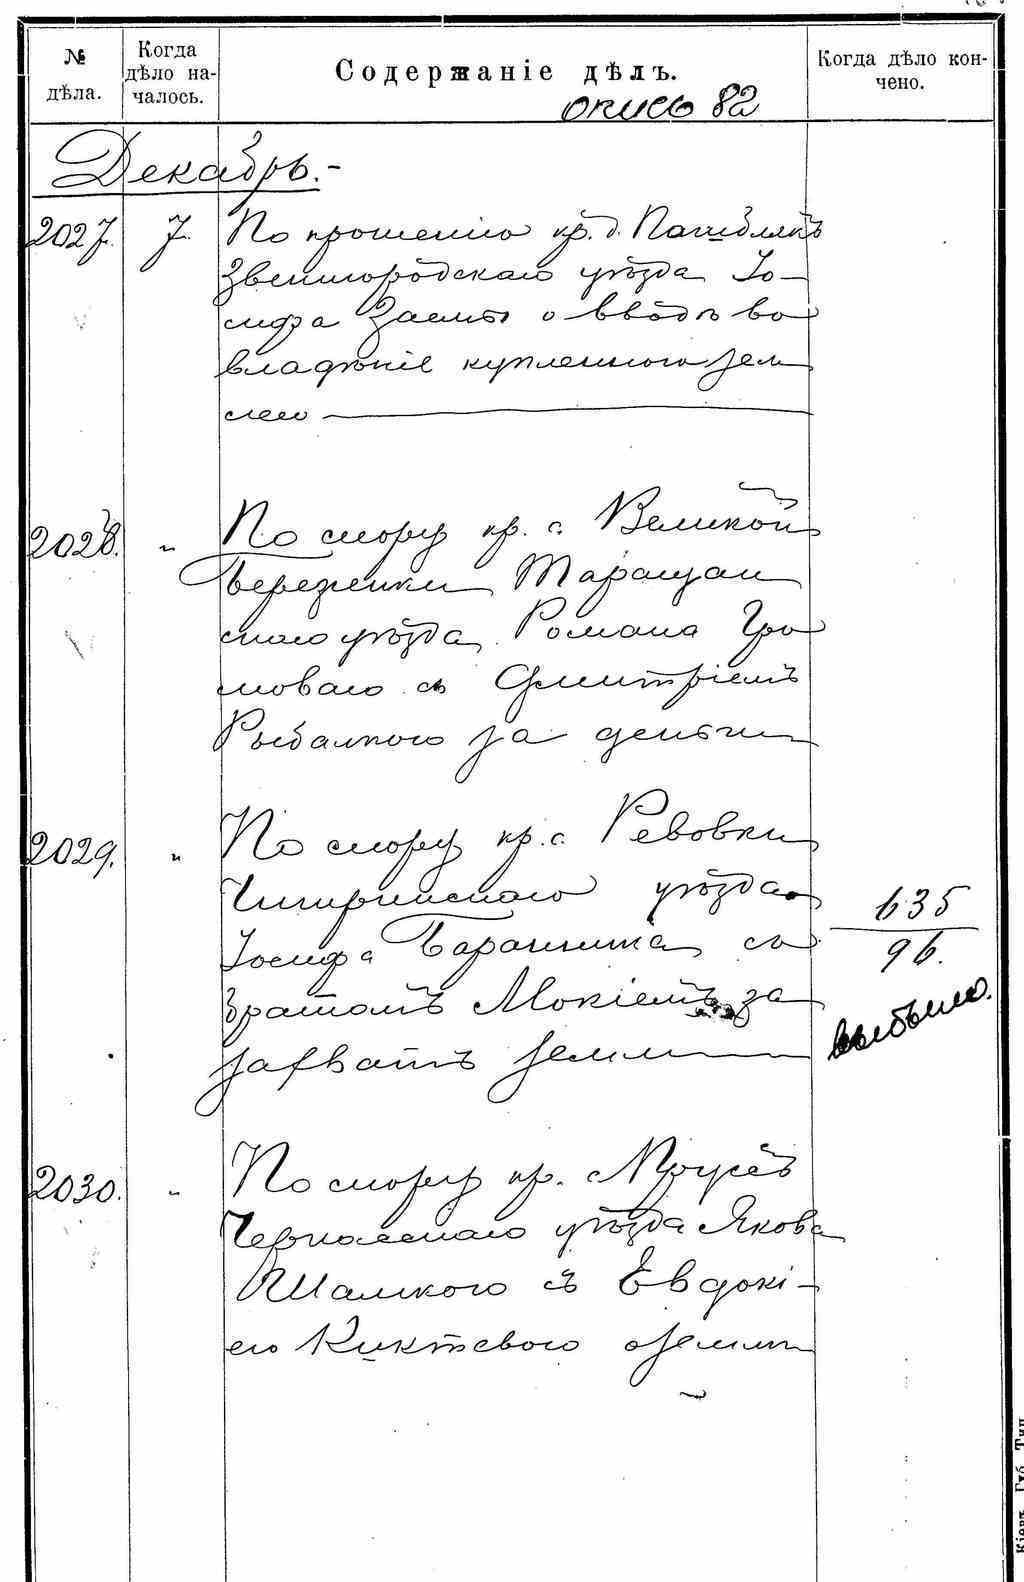 № дѣла.
Когда дѣло на-
чалось.
Содержаніе дѣлъ.
Когда дѣло кон-
чено.
опись 82
Декабрь.-
2027. 7. По прошенію кр. д.
Звенигородскаго уѣзда Іо-
сифа Заеми о вводѣ во
владѣніе купленною зем
лею
2028. " По спору кр. с. Великой
Березянки Таращан
скаго уѣзда Романа Гро
моваго съ Дмитріемъ
Рыбалкою за деньги
2029. " По спору кр. с. Ревовки
Чигиринскаго уѣзда
Іосифа Баранника съ
братомъ Мокіемъ за
захватъ земли
635
96.
выбыло.
2030. " По спору кр. с.
Черкасскаго уѣзда Якова
Шамкого съ Евдокі-
ею о земли
Кіевъ. Губ. Тип.